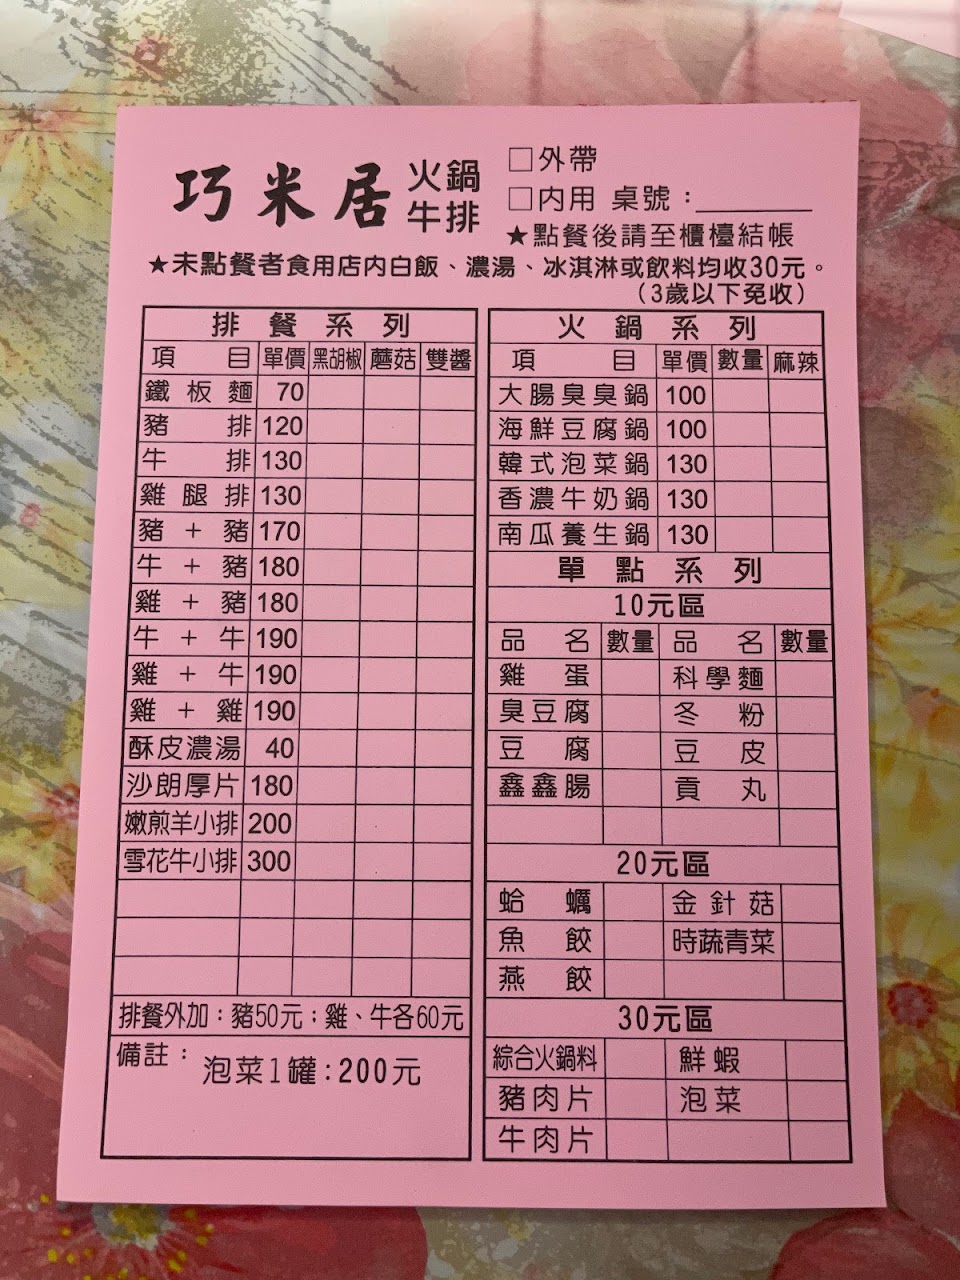 巧米居 火鍋 牛排
□外帶
□內用 桌號：
★點餐後請至櫃檯結帳
★未點餐者食用店內白飯、濃湯、冰淇淋或飲料均收30元。
（3歲以下免收）
排餐系列
項目 單價 黑胡椒 蘑菇 雙醬
鐵板麵 70
豬排 120
牛排 130
雞腿排 130
豬＋豬 170
牛＋豬 180
雞＋豬 180
牛＋牛 190
雞＋牛 190
雞＋雞 190
酥皮濃湯 40
沙朗厚片 180
嫩煎羊小排 200
雪花牛小排 300
排餐外加：豬50元；雞、牛各60元
備註：
泡菜1罐:200元
火鍋系列
項目 單價 數量 麻辣
大腸臭臭鍋 100
海鮮豆腐鍋 100
韓式泡菜鍋 130
香濃牛奶鍋 130
南瓜養生鍋 130
單點系列
10元區
品名 數量 品名 數量
雞蛋 科學麵
臭豆腐 冬粉
豆腐 豆皮
鑫鑫腸 貢丸
20元區
蛤蠣 金針菇
魚餃 時蔬青菜
燕餃
30元區
綜合火鍋料 鮮蝦
豬肉片 泡菜
牛肉片